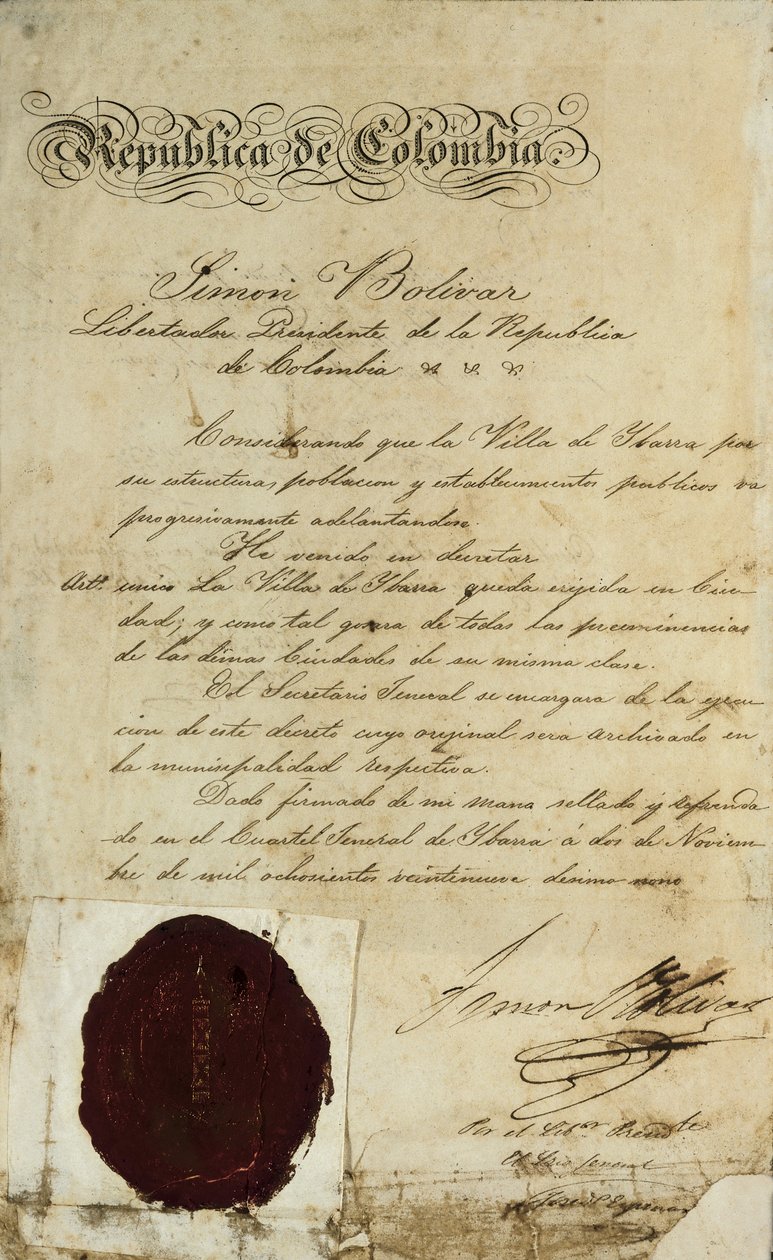 Republica de Colombia.
Simon Bolivar
Libertador Presidente de la Republica
de Colombia
Considerando que la Villa de Ybarra por
su estructura, poblacion y establecimientos publicos va
progresivamente adelantandose.
He venido en decretar
Artº. unico La Villa de Ybarra queda erijida en Ciu-
dad; y como tal gosara de todas las preeminencias
de las demas Ciudades de su misma clase.
El Secretario Jeneral se encargara de la ejecu-
cion de este decreto cuyo original sera archivado en
la municipalidad respectiva.
Dado firmado de mi mana sellado y refrenda
-do en el Cuartel Jeneral de Ybarra á dos de Noviem-
bre de mil ochosientos veintenueve desimo nono
Simon Bolivar
Por el Libºr Presidte
El Srio Jeneral